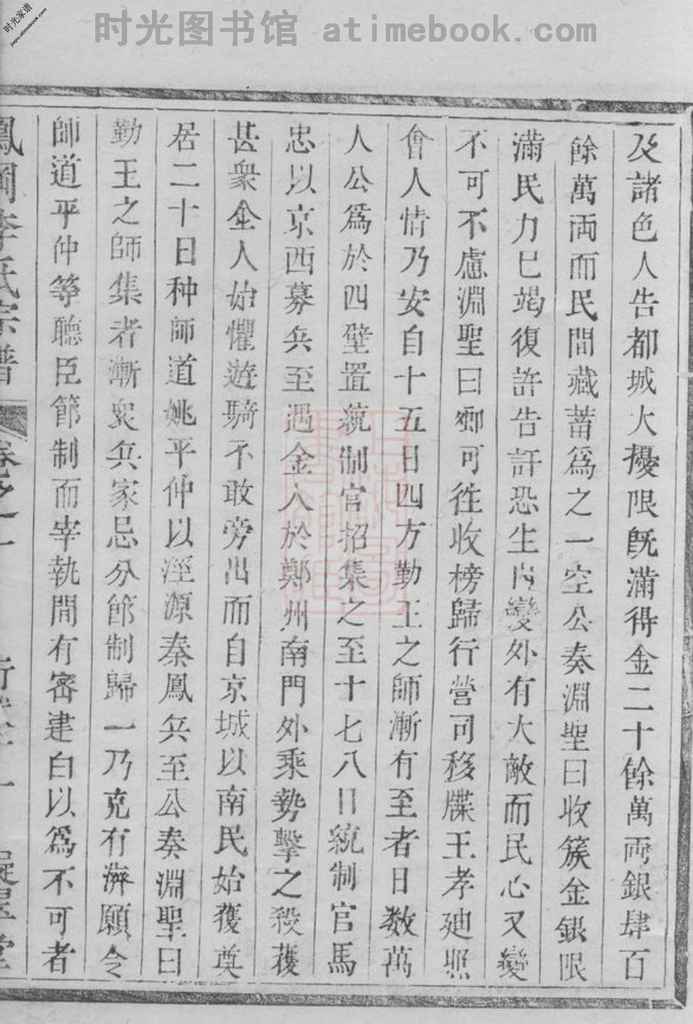 时光图书馆 atimebook.com
时光家谱
及諸色人告都城大擾限旣滿得金二十餘萬両銀肆百
餘萬両而民間藏蓄爲之一空公奏淵聖曰收簇金銀限
滿民力已竭復許告訐恐生內變外有大敵而民心又變
不可不慮淵聖曰卿可徃收榜歸行營司移牒王孝廸照
會人情乃安自十五日四方勤王之師漸有至者日数萬
人公爲於四壁置統制官招集之至十七八日統制官馬
忠以京西募兵至遇金人於鄭州南門外乘勢擊之殺獲
甚衆金人始懼遊騎不敢旁出而自京城以南民始獲奠
居二十日种師道姚平仲以涇源秦鳳兵至公奏淵聖曰
勤王之師集者漸衆兵家忌分節制歸一乃克有濟願令
師道平仲等聽臣節制而宰執間有密建白以爲不可者
鳳岡李氏宗譜
卷之一